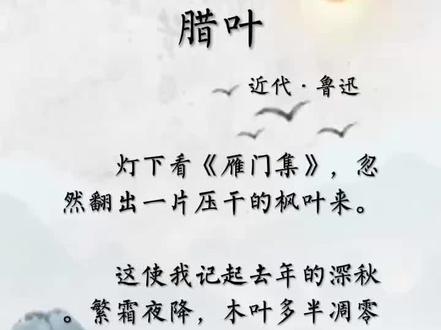 腊叶
近代·鲁迅
灯下看《雁门集》，忽
然翻出一片压干的枫叶来。
这使我记起去年的深秋
。繁霜夜降，木叶多半凋零